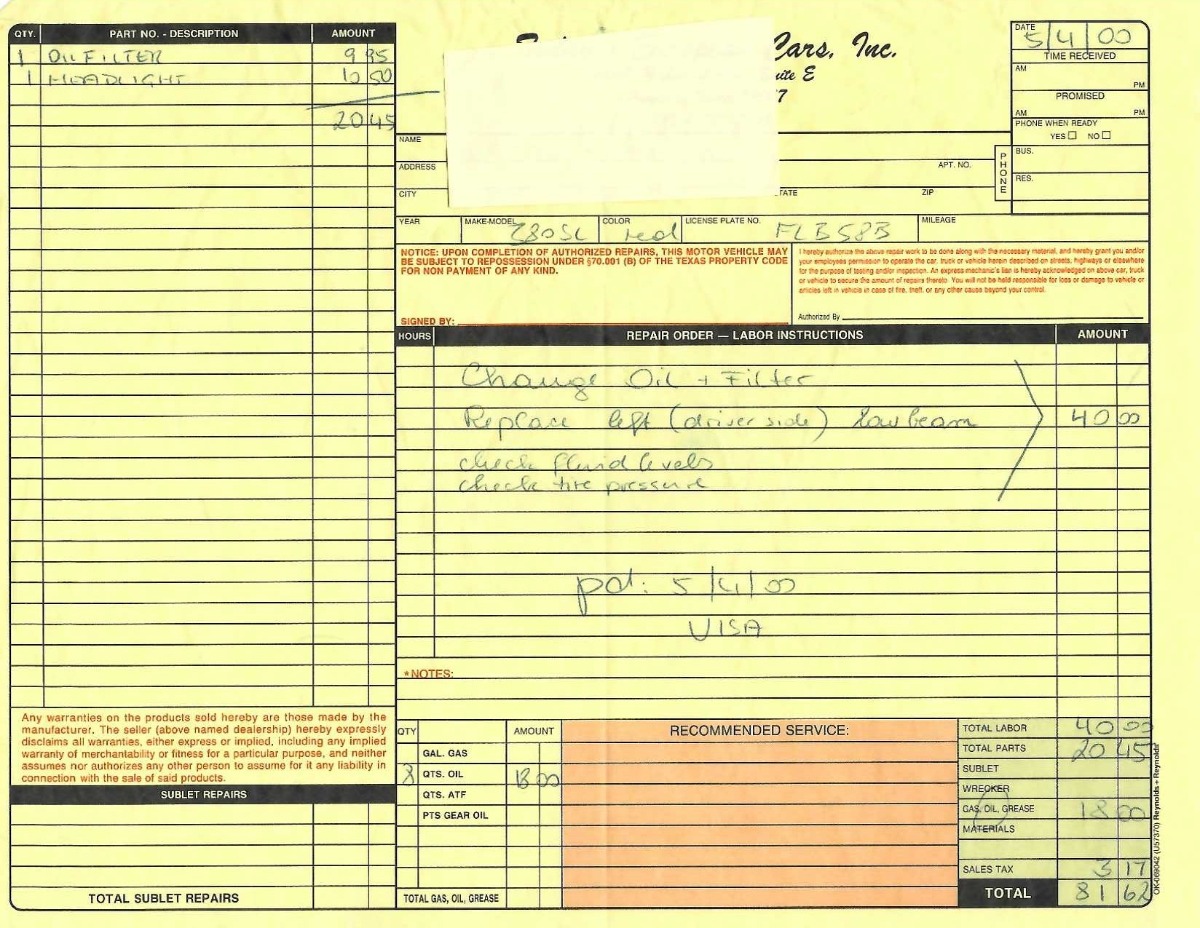 QTY. PART NO. - DESCRIPTION AMOUNT
1 OIL FILTER 9 95
1 HEADLIGHT 10 50
20 45
Any warranties on the products sold hereby are those made by the
manufacturer. The seller (above named dealership) hereby expressly
disclaims all warranties, either express or implied, including any implied
warranty of merchantability or fitness for a particular purpose, and neither
assumes nor authorizes any other person to assume for it any liability in
connection with the sale of said products.
SUBLET REPAIRS
TOTAL SUBLET REPAIRS
Cars, Inc.
uite E
7
DATE
5/4/00
TIME RECEIVED
AM PM
PROMISED
AM PM
PHONE WHEN READY
YES NO
PHONE
BUS.
RES.
NAME
ADDRESS APT. NO.
CITY TATE ZIP
YEAR MAKE-MODEL COLOR LICENSE PLATE NO. MILEAGE
380SL red FLB58B
NOTICE: UPON COMPLETION OF AUTHORIZED REPAIRS, THIS MOTOR VEHICLE MAY
BE SUBJECT TO REPOSSESSION UNDER §70.001 (B) OF THE TEXAS PROPERTY CODE
FOR NON PAYMENT OF ANY KIND.
SIGNED BY:
I hereby authorize the above repair work to be done along with the necessary material, and hereby grant you and/or
your employees permission to operate the car, truck or vehicle herein described on streets, highways or elsewhere
for the purpose of testing and/or inspection. An express mechanic's lien is hereby acknowledged on above car, truck
or vehicle to secure the amount of repairs thereto. You will not be held responsible for loss or damage to vehicle or
articles left in vehicle in case of fire, theft, or any other cause beyond your control.
Authorized By
HOURS REPAIR ORDER — LABOR INSTRUCTIONS AMOUNT
Change Oil + Filter
Replace left (driver side) low beam 40 00
check fluid levels
check tire pressure
pd: 5/4/00
VISA
*NOTES:
QTY AMOUNT
GAL. GAS
8 QTS. OIL 18 00
QTS. ATF
PTS GEAR OIL
TOTAL GAS, OIL, GREASE
RECOMMENDED SERVICE:
TOTAL LABOR 40 00
TOTAL PARTS 20 45
SUBLET
WRECKER
GAS, OIL, GREASE 18 00
MATERIALS
SALES TAX 3 17
TOTAL 81 62
OK-069042 (U57370) Reynolds + Reynolds